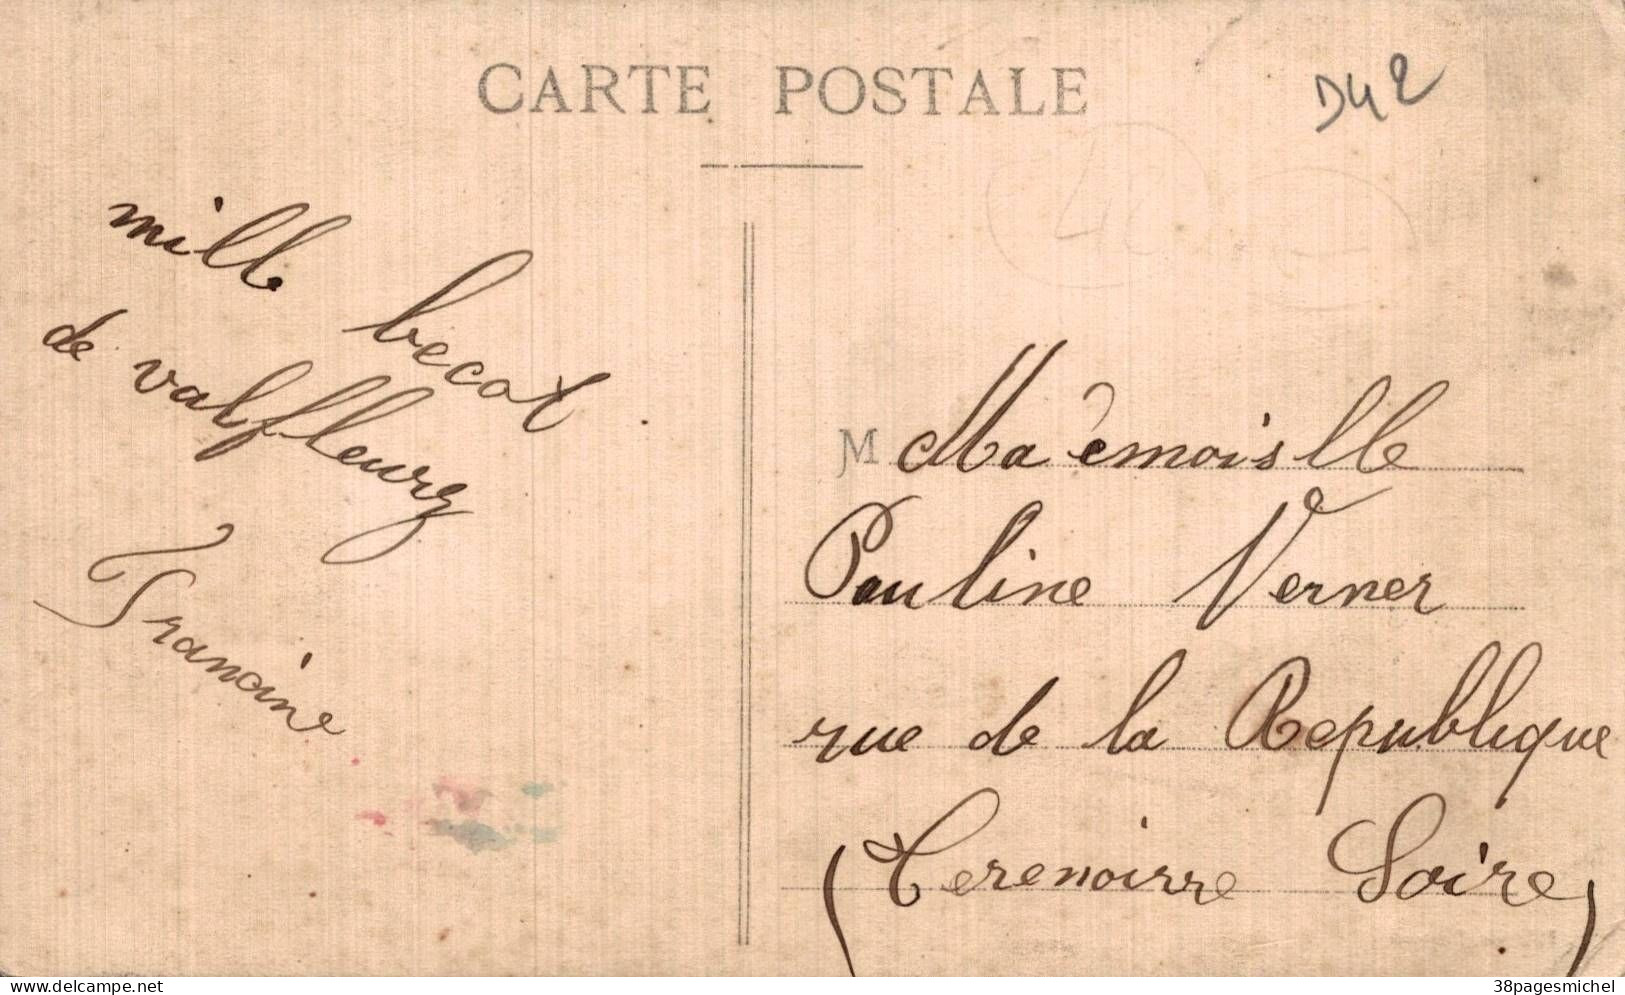 CARTE POSTALE
D42
42
mille becot
de valfleury
Francine
M Ma'emoislle
Pauline Verner
rue de la Republique
(Terenoirre Loire)
delcampe.net
38pagesmichel